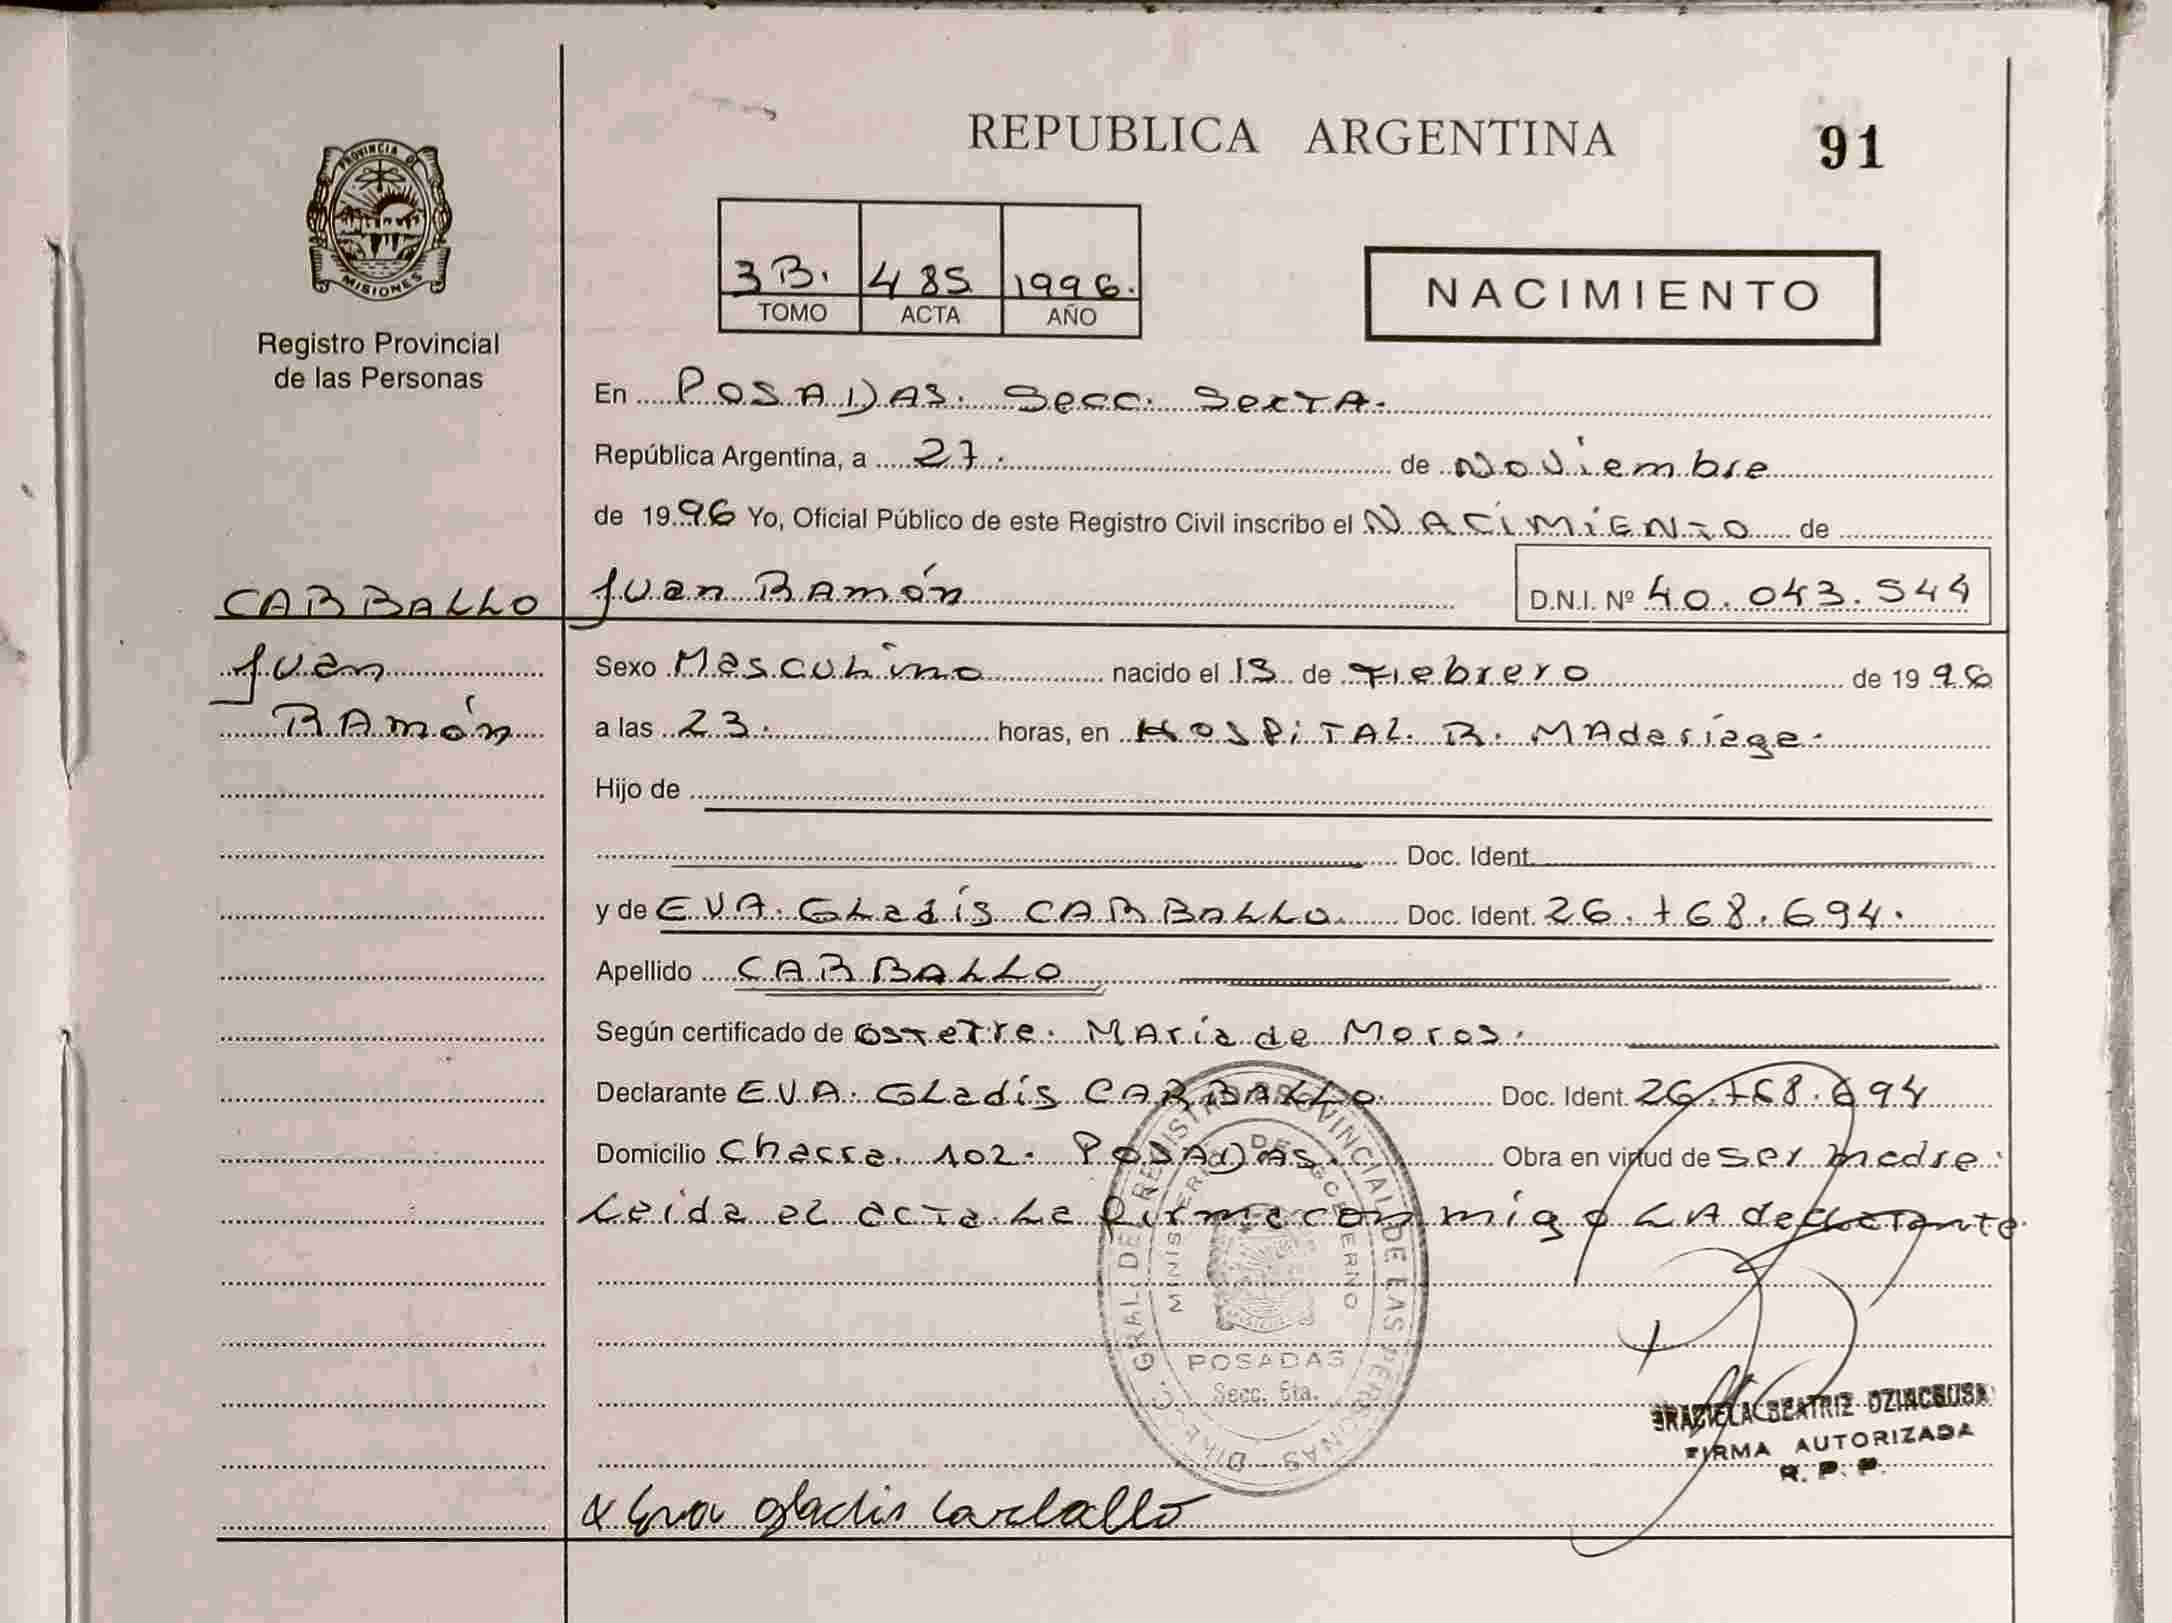 REPUBLICA ARGENTINA
91
PROVINCIA DE
MISIONES
Registro Provincial
de las Personas
3B. 485 1996.
TOMO ACTA AÑO
NACIMIENTO
En POSADAS. Secc. SexTA.
República Argentina, a 27. de Noviembre
de 1996 Yo, Oficial Público de este Registro Civil inscribo el NACIMIENTO de
CARBALLO
Juan Ramón
D.N.I. Nº 40.043.544
Juan
Ramón
Sexo Masculino nacido el 13 de Febrero de 1996
a las 23. horas, en HOSPITAL. R. MAdariaga.
Hijo de
Doc. Ident.
y de EVA. GLadis CARBALLO. Doc. Ident. 26.768.694.
Apellido CARBALLO
Según certificado de MAria de Moros.
Declarante EVA. GLadis CARBALLO. Doc. Ident. 26.768.694
Domicilio Chacra. 102. POSADAS. Obra en virtud de ser madre.
Leida el acta La firma conmigo LA declarante.
DIREC. GRAL. DE REGISTRO PROVINCIAL DE LAS PERSONAS
MINISTERIO DE GOBIERNO
POSADAS
Secc. 6ta.
GRACIELA BEATRIZ
FIRMA AUTORIZADA
R. P. P.
x Eva Gladis Carballo